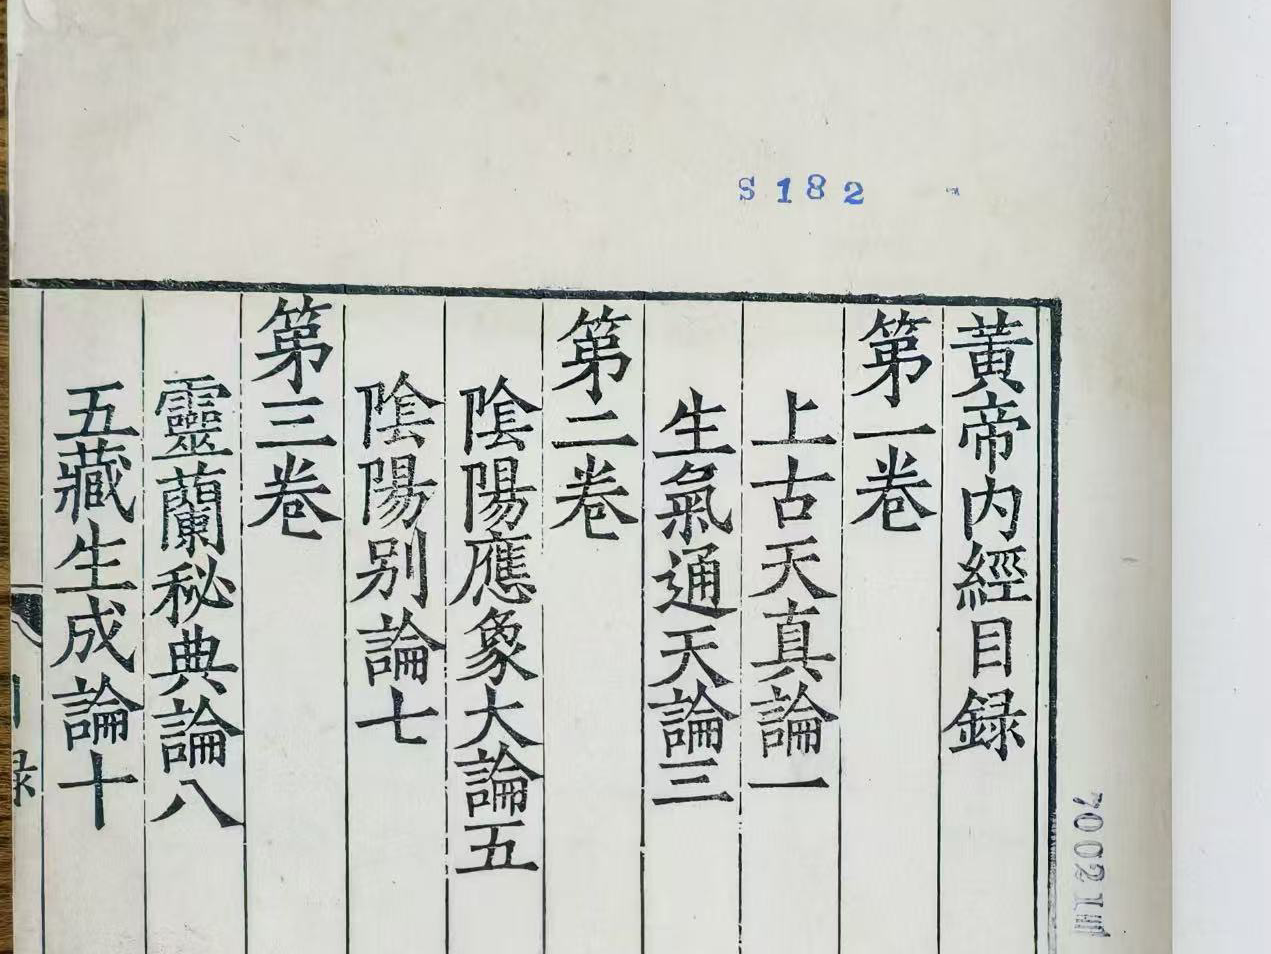 S182
黃帝内經目録
第一卷
上古天真論一
生氣通天論三
第二卷
陰陽應象大論五
陰陽别論七
第三卷
靈蘭秘典論八
五藏生成論十
録
70021